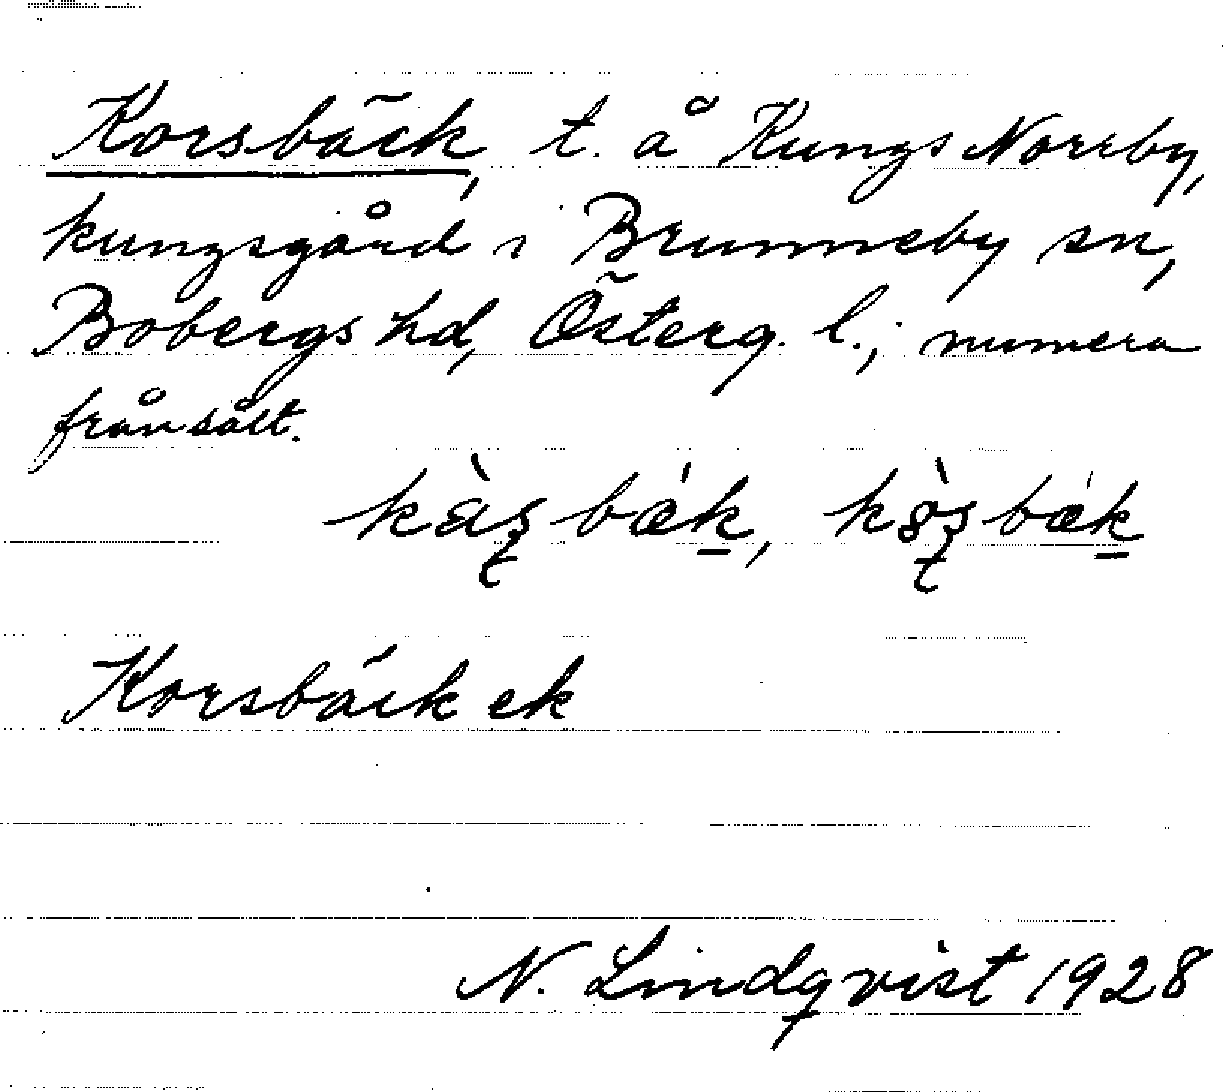 Korsbäck, t. å Kungs Norrby,
kungsgård i Brunneby sn,
Bobergs hd, Österg. l.; numera
frånsålt.
Korsbäck ek
N. Lindqvist 1928